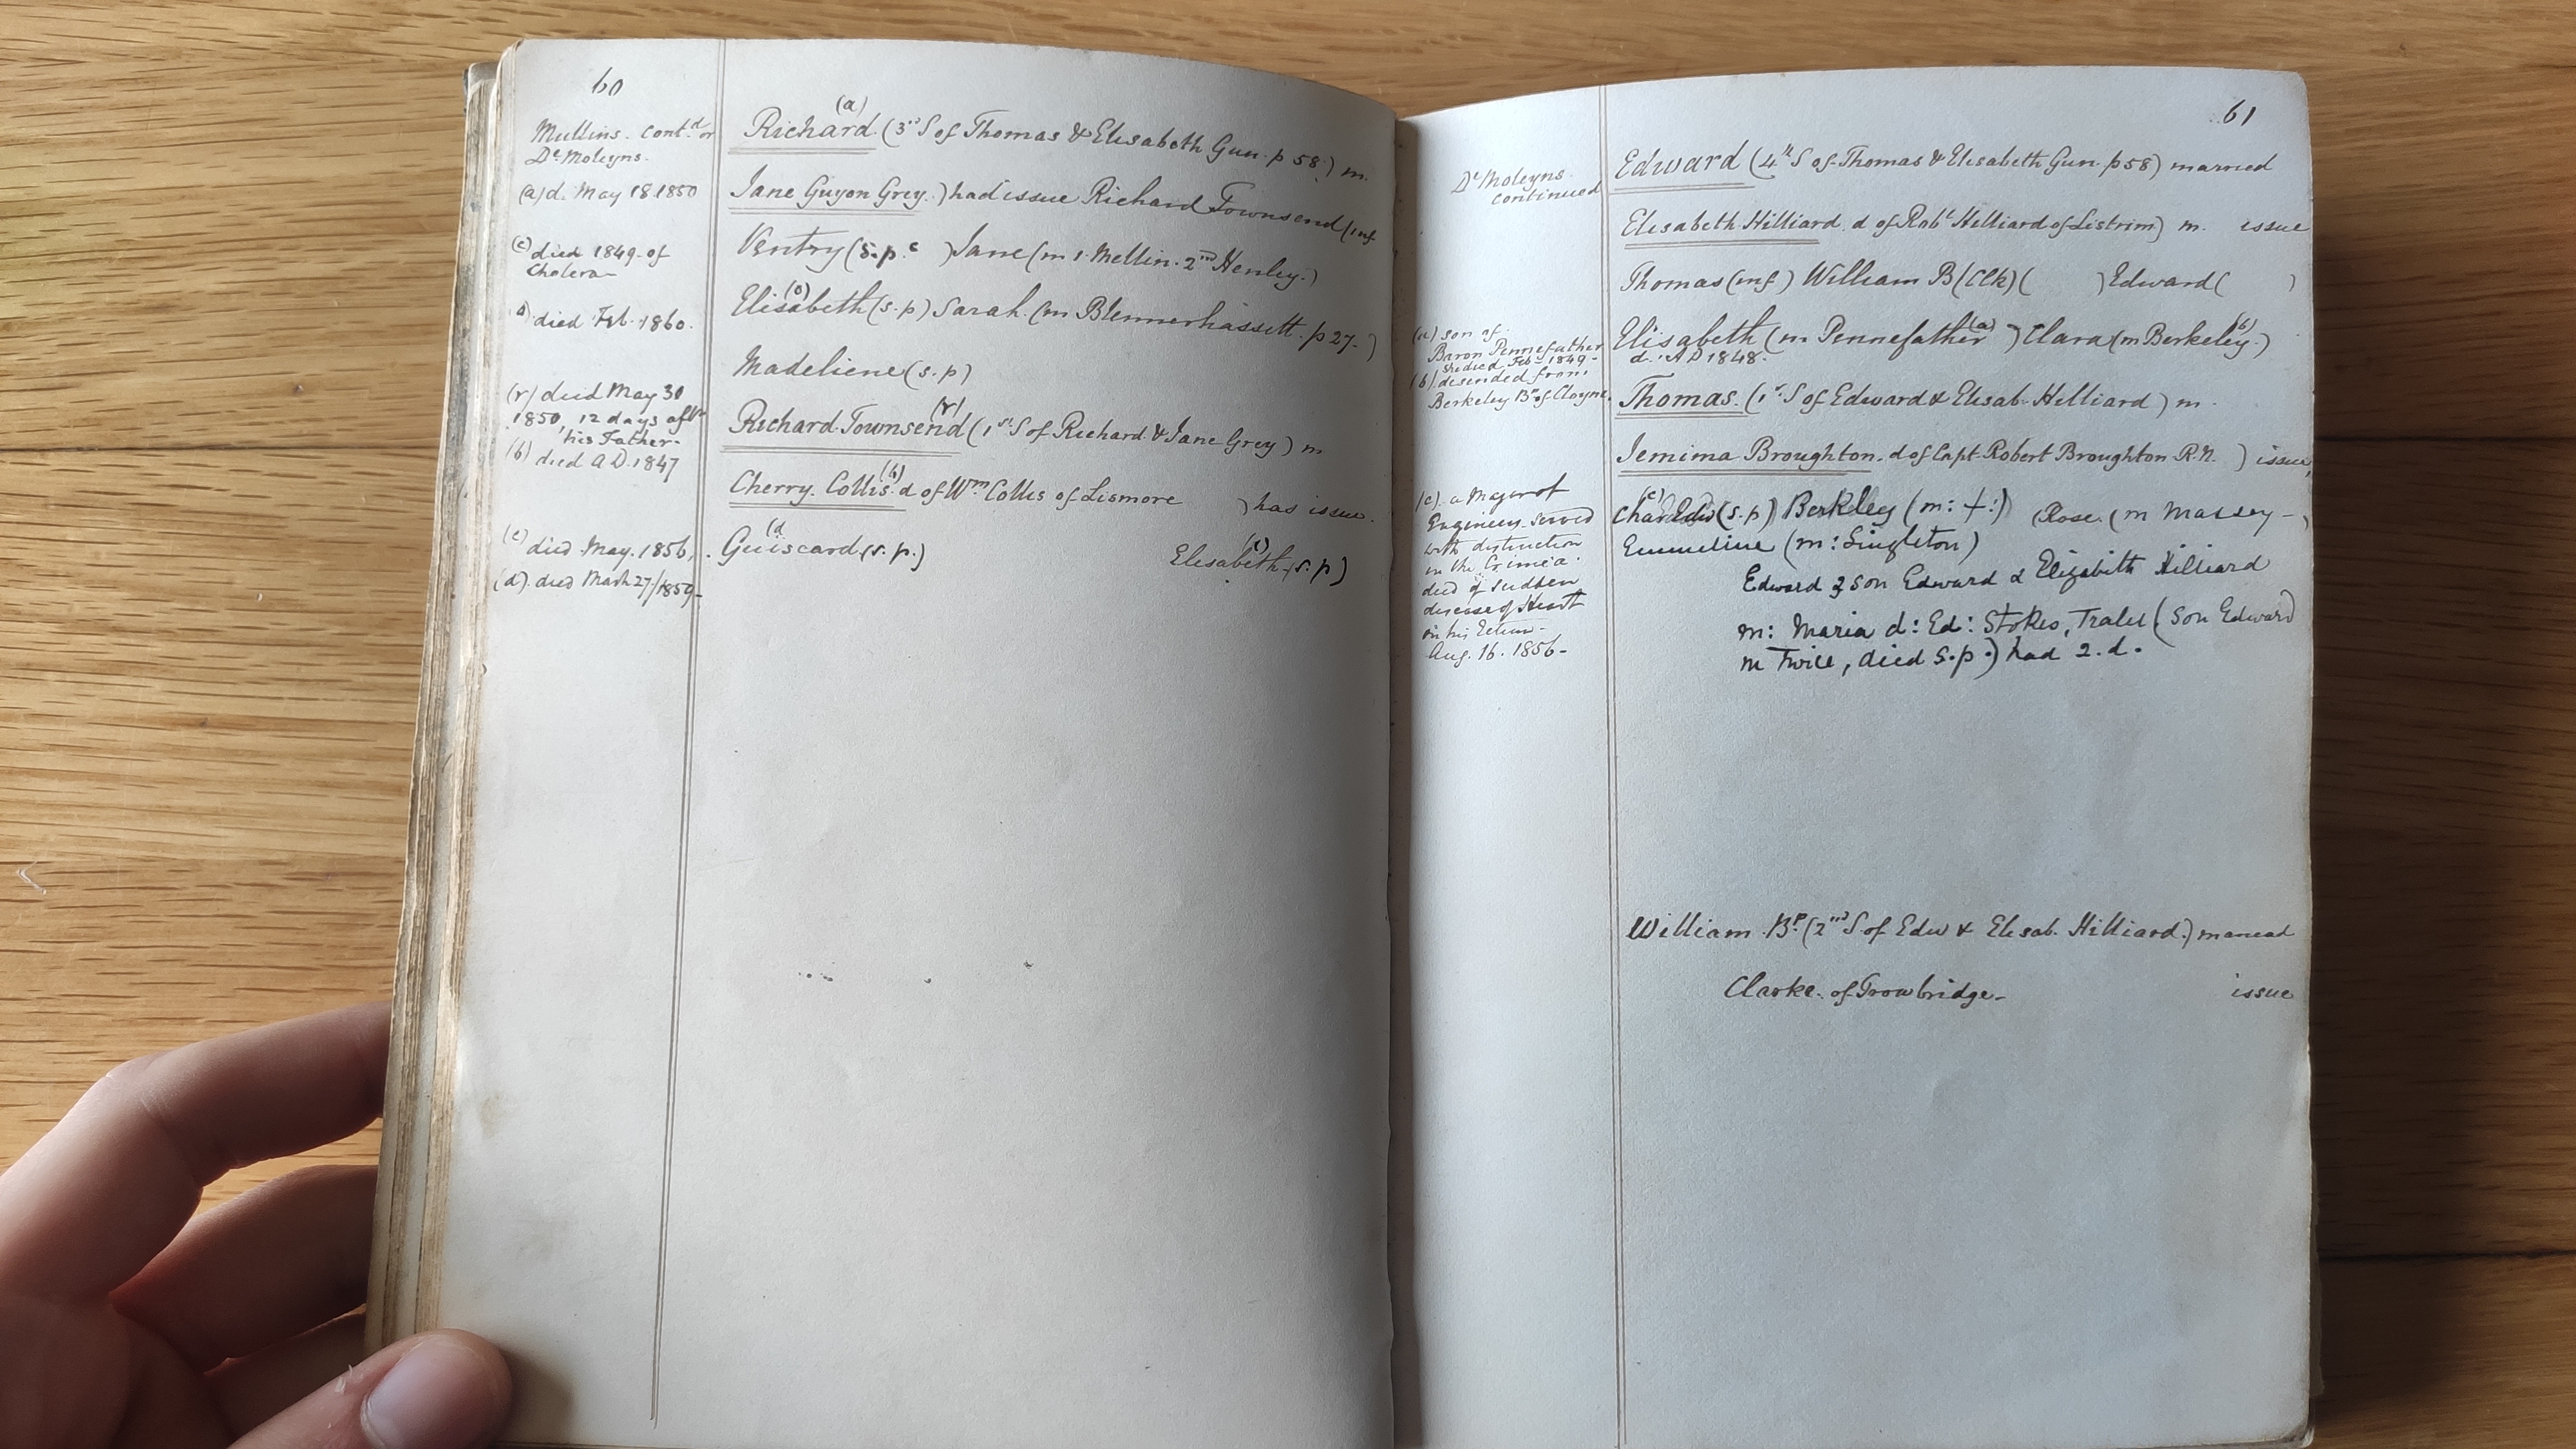 60
Mullins. cont.d or
De Moleyns.
(a) d. May 18. 1850
(c) died 1849 of
Cholera
died Feb. 1860.
(r) died May 30
1850, 12 days aftr
his Father.
(b) died A D. 1847
(e) died May. 1856.
(d) died March 27/1859
(a)
Richard (3rd S of Thomas & Elisabeth Gun. p 58.) m.
Jane Guyon Grey.) had issue Richard Townsend (inf
Ventry (s.p. c ) Jane (m 1 Mellin. 2nd Henley.)
Elisabeth (s.p) Sarah. (m Blennerhassett. p 27.)
Madeliene (s.p)
(r)
Richard Townsend (1st S of Richard & Jane Grey) m
(b)
Cherry. Collis. d of Wm Collis of Lismore ) has issue.
(d (e)
Guiscard (s.p.) Elisabeth (s.p)
61
De Moleyns
continued
(a) son of
Baron Pennefather
she died Feb. 1849.
(b) desended from
Berkeley Bp of Cloyne.
(c) a Major of
Engineers. served
with distinction
in the Crimea
died of sudden
disease of Heart
on his Return
Aug. 16. 1856-
Edward (4th S of Thomas & Elisabeth Gun. p 58) married
Elisabeth Hilliard. d of Robt Hilliard of Listrim) m. issue
Thomas (inf) William B (Clk) ( ) Edward ( )
Elisabeth (m Pennefather (a) ) Clara (m Berkeley. (b))
d. A D 1848.
Thomas. (1st S of Edward & Elisab. Hilliard) m.
Jemima Broughton. d of Capt. Robert Broughton R.N. ) issue,
(c)
Char Edw (s.p) Berkley (m: +:) (Rose. (m Massey - )
Emmeline (m: Singleton)
Edward 3 son Edward & Elizabith Hilliard
m: Maria d: Ed: Stokes, Tralee (son Edward
m Twice, died s.p.) had 2. d.
William Bp. (2nd S of Edw & Elisab. Hilliard.) married
Clarke. of Trowbridge- issue